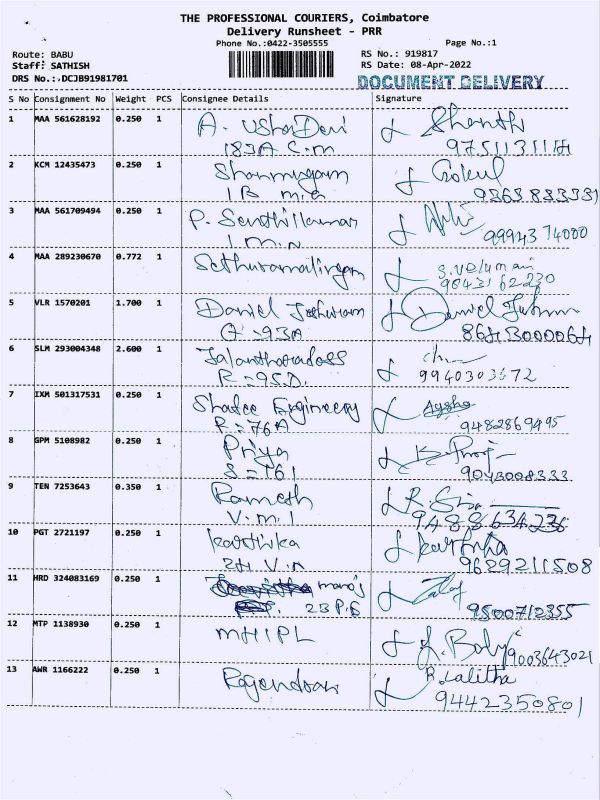 THE PROFESSIONAL COURIERS, Coimbatore
Delivery Runsheet - PRR
Phone No.:0422-3505555
Page No.:1
Route: BABU
RS No.: 919817
Staff: SATHISH
RS Date: 08-Apr-2022
DRS No.:.DCJB91981701
DOCUMENT DELIVERY
S No Consignment No Weight PCS Consignee Details Signature
1 MAA 561628192 0.250 1 A. Usha Devi Shanthi
183A C.M 9751131114
2 KCM 12435473 0.250 1 Shanmugam Gokul
1B M.A 9363833331
3 MAA 561709494 0.250 1 P. Senthilkumar
1 M.N 9994374000
4 MAA 289230670 0.772 1 Sethuramalingam S. Velumani
9843162230
5 VLR 1570201 1.700 1 Daniel
G-93A 8643000064
6 SLM 293004348 2.600 1
R-95.D. 9940303672
7 IXM 501317531 0.250 1 Engineery Aysha
R-76A 9482869495
8 GPM 5108982 0.250 1 Priya
S-161 9043008333
9 TEN 7253643 0.350 1 Ramesh R. Siva
V.M.1 9488634236
10 PGT 2721197 0.250 1 Karthika Karthika
2H V.N 9629211508
11 HRD 324083169 0.250 1 manoj
23 P.G 9500712355
12 MTP 1138930 0.250 1 MHIPL
9003643021
13 AWR 1166222 0.250 1 Rajendran R. Lalitha
9442350801